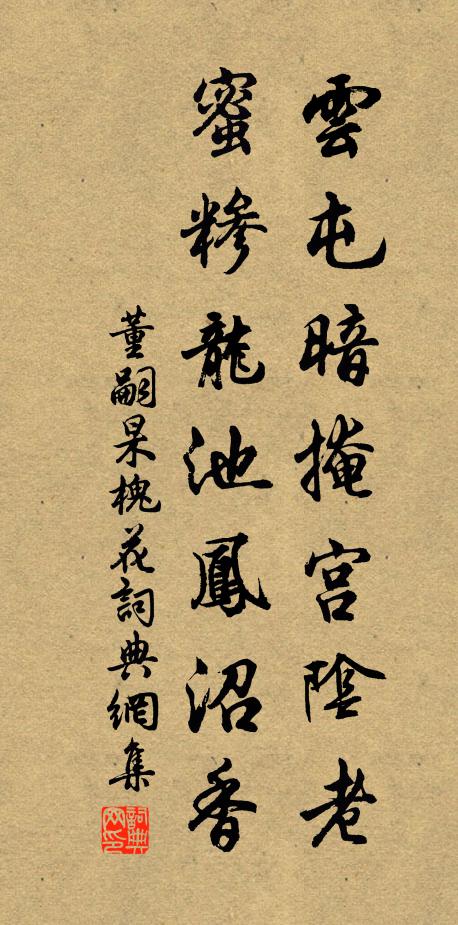 雲屯暗掩宮陰老
蜜糝龍池鳳沼香
董嗣杲槐花詞典網集
詞典網印